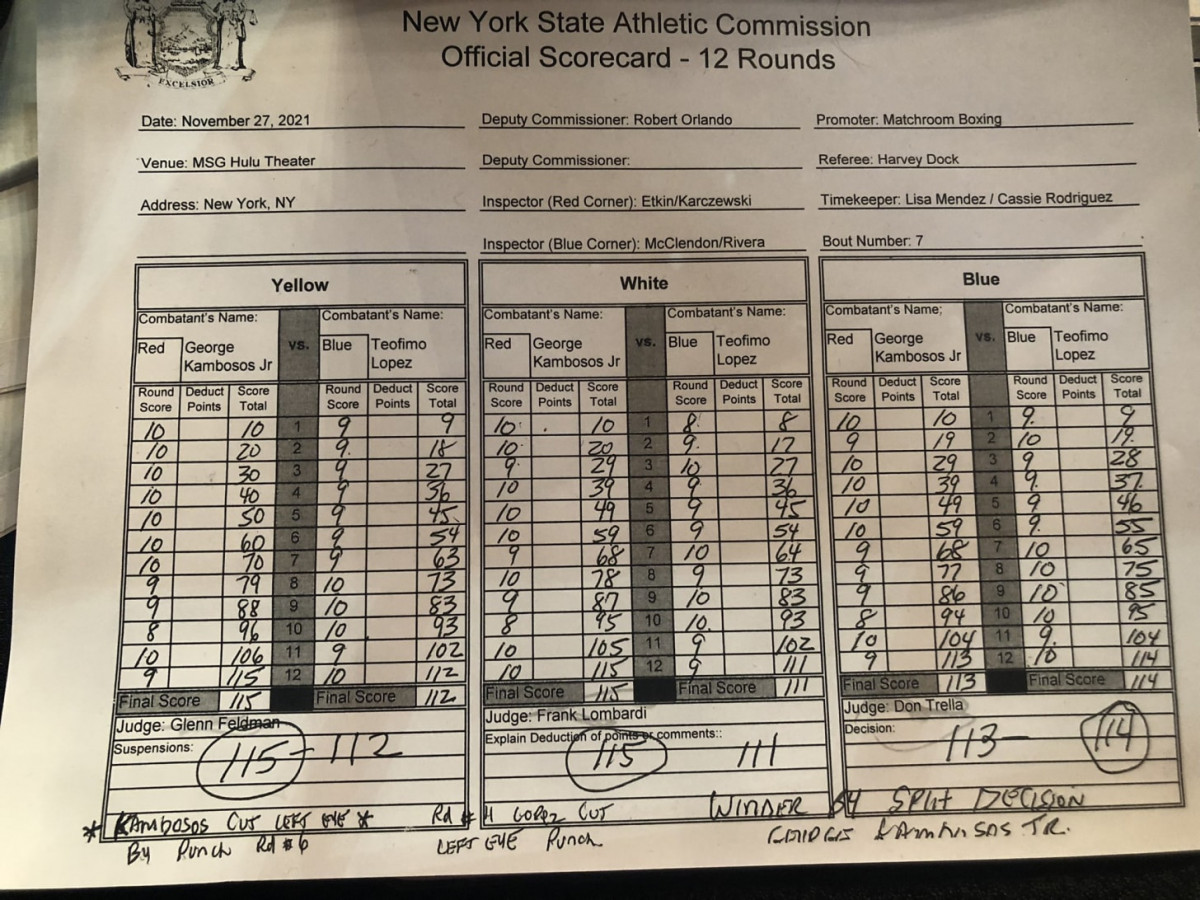 EXCELSIOR
New York State Athletic Commission
Official Scorecard - 12 Rounds
Date: November 27, 2021 Deputy Commissioner: Robert Orlando Promoter: Matchroom Boxing
Venue: MSG Hulu Theater Deputy Commissioner: Referee: Harvey Dock
Address: New York, NY Inspector (Red Corner): Etkin/Karczewski Timekeeper: Lisa Mendez / Cassie Rodriguez
Inspector (Blue Corner): McClendon/Rivera Bout Number: 7
Yellow
Combatant's Name: vs. Combatant's Name:
Red George Kambosos Jr Blue Teofimo Lopez
Round Score Deduct Points Score Total Round Score Deduct Points Score Total
10 10 1 9 9
10 20 2 9 18
10 30 3 9 27
10 40 4 9 36
10 50 5 9 45
10 60 6 9 54
10 70 7 9 63
9 79 8 10 73
9 88 9 10 83
8 96 10 10 93
10 106 11 9 102
9 115 12 10 112
Final Score 115 Final Score 112
Judge: Glenn Feldman
Suspensions: 115 - 112
White
Combatant's Name: vs. Combatant's Name:
Red George Kambosos Jr Blue Teofimo Lopez
Round Score Deduct Points Score Total Round Score Deduct Points Score Total
10 10 1 8 8
10 20 2 9 17
9 29 3 10 27
10 39 4 9 36
10 49 5 9 45
10 59 6 9 54
9 68 7 10 64
10 78 8 9 73
9 87 9 10 83
8 95 10 10 93
10 105 11 9 102
10 115 12 9 111
Final Score 115 Final Score 111
Judge: Frank Lombardi
Explain Deduction of points or comments::
115 111
Blue
Combatant's Name; Combatant's Name:
Red George Kambosos Jr vs. Blue Teofimo Lopez
Round Score Deduct Points Score Total Round Score Deduct Points Score Total
10 10 1 9 9
9 19 2 10 19
10 29 3 9 28
10 39 4 9 37
10 49 5 9 46
10 59 6 9 55
9 68 7 10 65
9 77 8 10 75
9 86 9 10 85
8 94 10 10 95
10 104 11 9 104
9 113 12 10 114
Final Score 113 Final Score 114
Judge: Don Trella
Decision: 113 - 114
* KAMBOSOS CUT LEFT EYE *
By Punch Rd #6
Rd # 11 LOPEZ CUT
LEFT EYE Punch
WINNER BY SPLIT DECISION
KAMBOSOS JR.